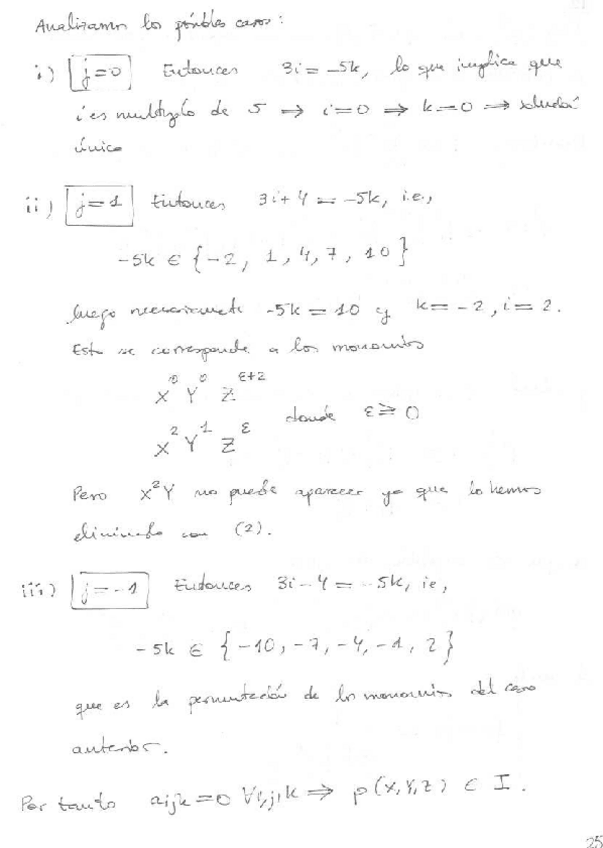 Analizamos los posibles casos:
i) j=0 Entonces 3i = -5k, lo que implica que
i es multiplo de 5 ⇒ i=0 ⇒ k=0 ⇒ solución
única
ii) j=1 Entonces 3i+4 = -5k, i.e.,
-5k ∈ {-2, 1, 4, 7, 10}
luego necesariamente -5k = 10 y k = -2, i = 2.
Esto se corresponde a los monomios
X^0 Y^0 Z^{ε+2}
donde ε ≥ 0
X^2 Y^1 Z^ε
Pero X^2Y no puede aparecer ya que lo hemos
eliminado con (2).
iii) j=-1 Entonces 3i-4 = -5k, ie,
-5k ∈ {-10, -7, -4, -1, 2}
que es la permutación de los monomios del caso
anterior.
Por tanto aijk = 0 ∀i,j,k ⇒ p(X,Y,Z) ⊂ I.
25